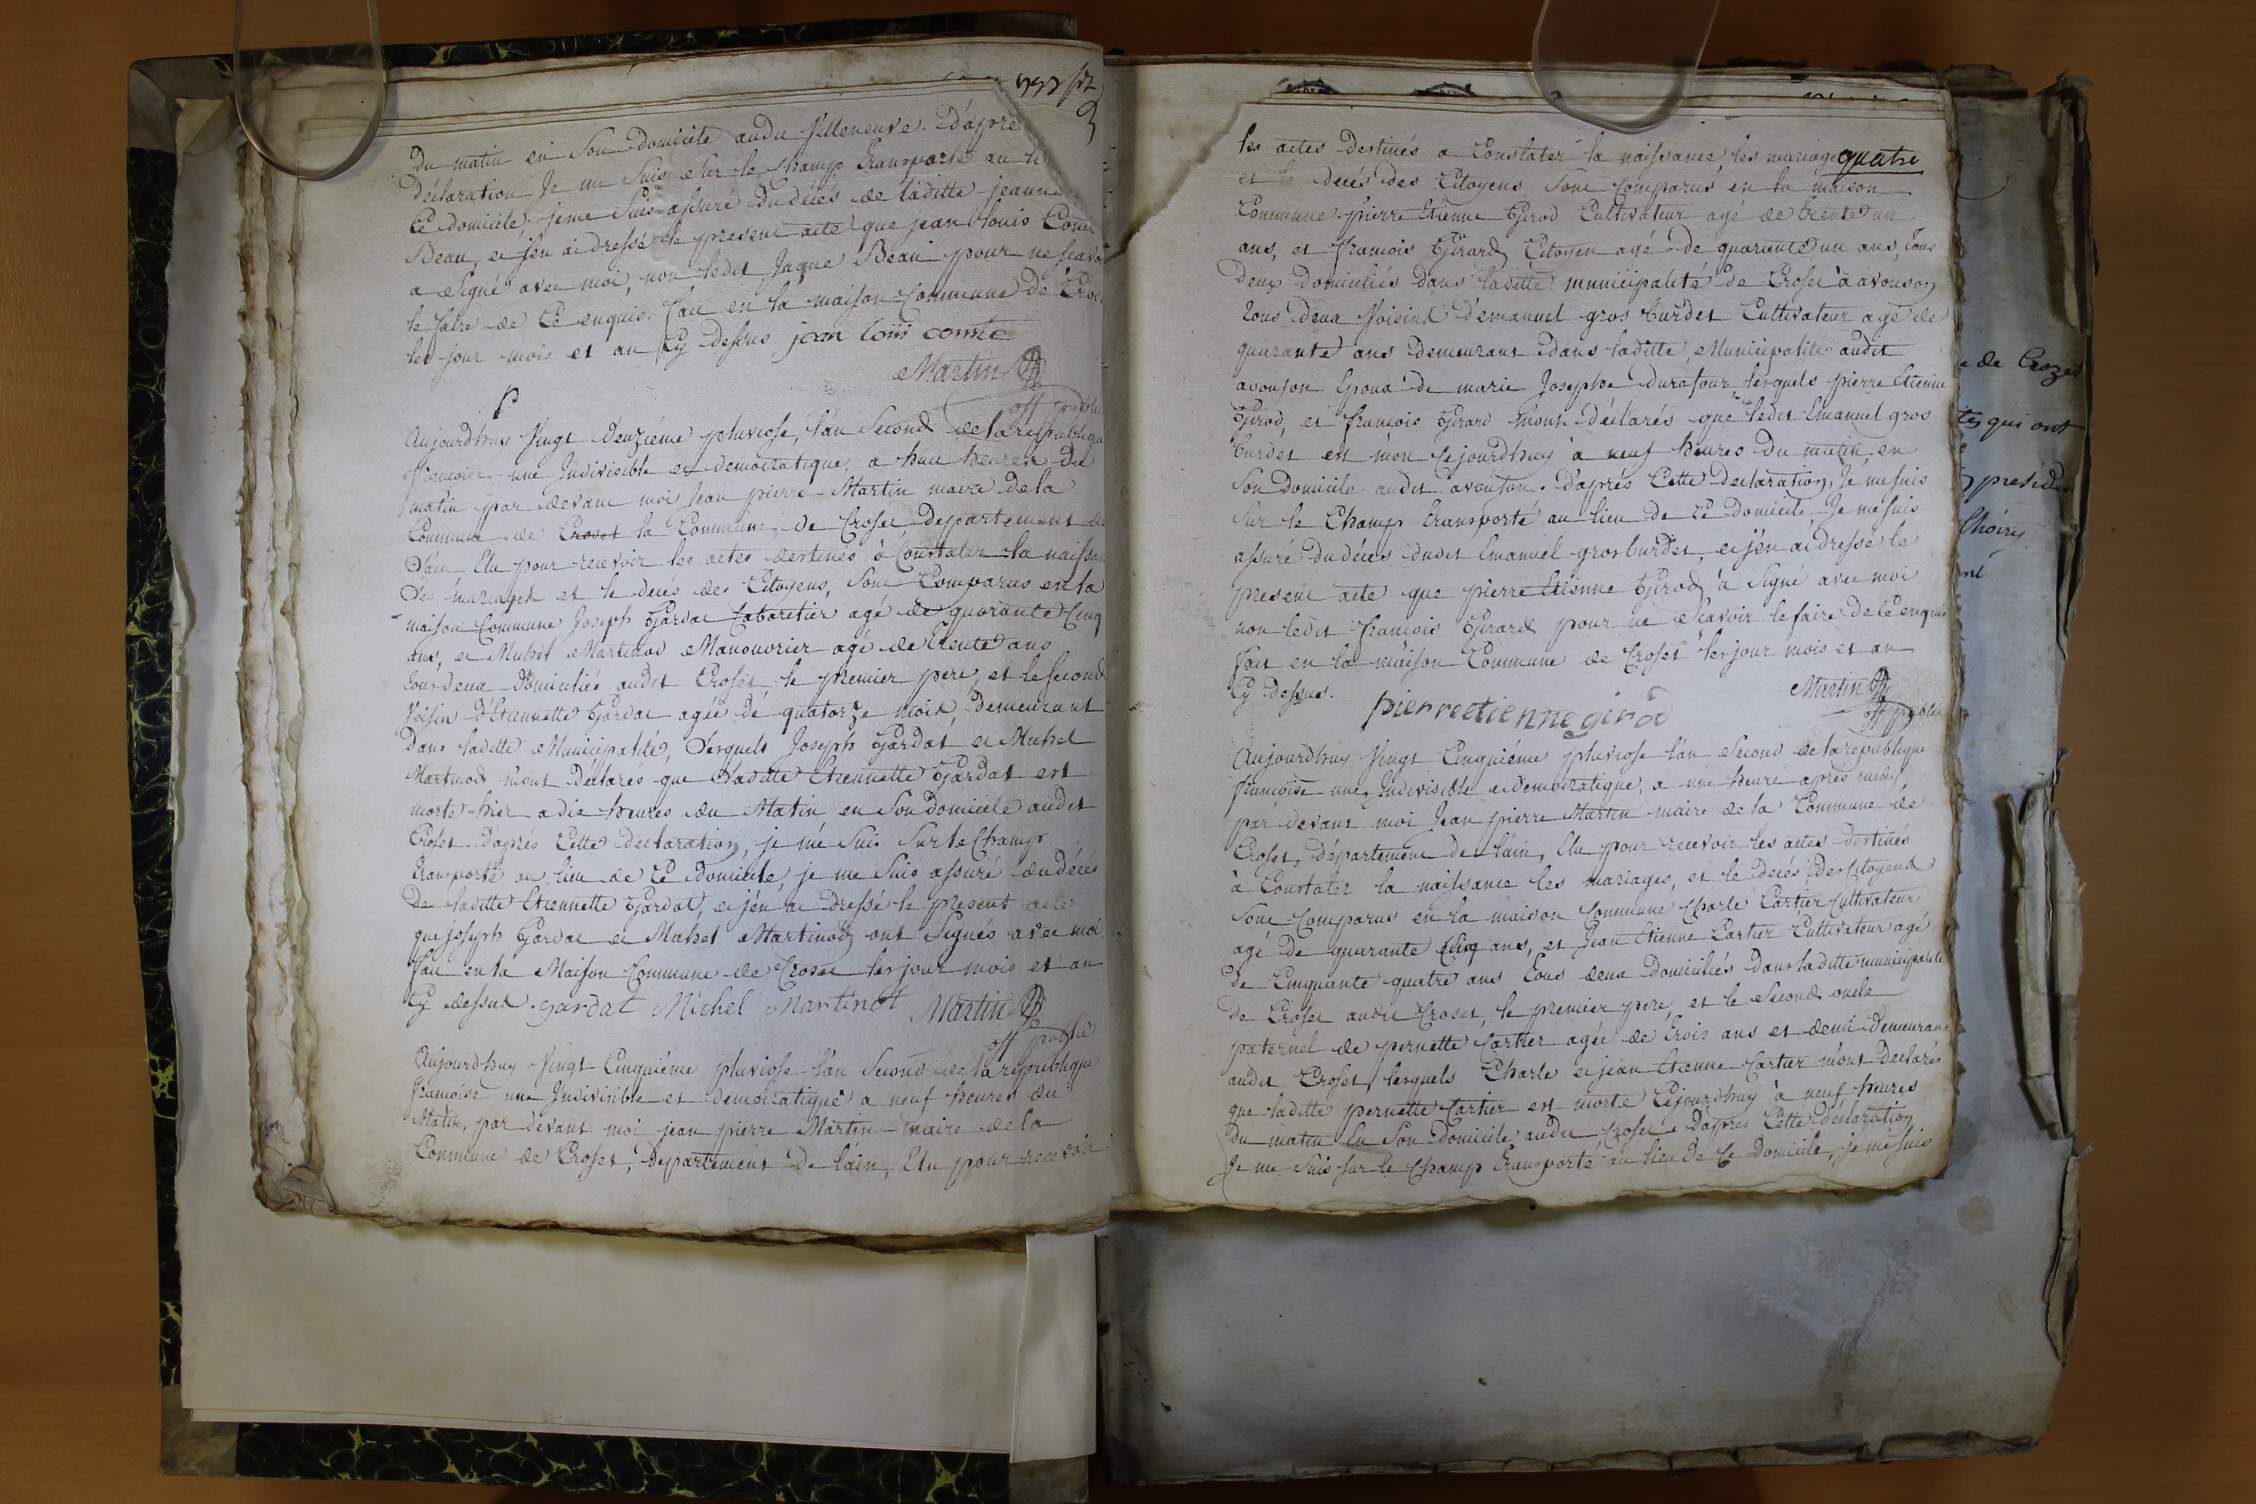 du matin en Son domicile audit Villeneuve. D'aprè
déclaration Je me Suis Sur le Champ transporté au
Ce domicile, je me Suis assuré du décés de laditte jeanne
Beau, et j'en ai dressé le present acte que jean Louis Comte
a Signé avec moi, non ledit Jaque Beau pour ne sçavo
le faire de Ce enquis. fait en la maison Commune de Croz
les jour mois et an Cy dessus jean loui comte
Martin
off public
Aujourdhuy Vingt deuziéme pluviose, l'an Second de la republique
françoise une Indivisible et democratique, a huit heures du
matin par devant moi Jean pierre Martin maire de la
Commune de Croset la Commune de Croset Departement de
l'ain Elu pour recevoir les actes destinés à Constater la naissa
les mariages et le decés des Citoyens, Sont Comparus en la
maison Commune Joseph Gardat Cabaretier agé de quarante Cinq
ans, et Michel Martinod Manouvrier agé de trente ans
tous deux domiciliés audit Croset le premier pere, et le second
Voisin d'Etiennette Gardat agée de quatorze mois, Demeurant
Dans laditte Municipalité, Lesquels Joseph Gardat et Michel
Martinod m'ont Declarés que laditte Etiennette Gardat est
morte hier a dix heures du Matin en Son Domicile audit
Croset D'aprés Cette declaration, je me Suis Sur le Champ
transporté au lieu de Ce domicile, je me Suis assuré du décés
de laditte Etiennette Gardat, et j'en ai Dressé le present acte
que joseph Gardat et Michel Martinod ont Signés avec moi
fait en la Maison Commune de Croset les jour mois et an
Cy dessus. gardat Michel Martinot Martin
off public
Aujourdhuy Vingt Cinquiéme pluviose l'an Second de la republique
françoise une Indivisible et democratique a neuf heures du
Matin, par devant moi jean pierre Martin maire de la
Commune de Croset, departement de l'ain, Elu pour recevoir
quatre
les actes destinés a Constater la naissance les mariages
et le decés des Citoyens Sont Comparus en la maison
Commune pierre Etienne Girod Cultivateur agé de trente un
ans, et françois Girard Citoyen agé de quarante un ans, tous
deux domiciliés dans laditte municipalité de Croset à avouson
tous deux Voisins d'Emanuel gros burdet Cultivateur agé de
quarante ans Demeurant dans laditte Municipalité audit
avouson Epoux de marie Josephe durafour lesquels pierre Etienne
Girod, et françois Girard m'ont déclarés que ledit Emanuel gros
burdet est mort Cejourdhuy à neuf heures du matin en
Son Domicile audit avouson. d'aprés Cette Declaration, Je me suis
Sur le Champ transporté au lieu de Ce Domicile Je me suis
assuré du décés dudit Emanuel grosburdet, et j'en ai dressé le
present acte que pierre Etienne Girod à Signé avec moi
non ledit françois Girard pour ne Sçavoir le faire de Ce enquis
fait en la maison Commune de Croset les jour mois et an
Cy dessus.
Martin
pierreetienne girod
off public
Aujourdhuy Vingt Cinquiéme pluviose l'an Second de la republique
françoise une Indivisible et democratique, a une heure aprés midy
par devant moi Jean pierre Martin maire de la Commune de
Croset, département de l'ain, Elu pour recevoir les actes destinés
à Constater la naissance les mariages, et le decés des Citoyens
Sont Comparus en la maison Commune Charle Cartier Cultivateur
agé de quarante Cinq ans, et Jean Etienne Cartier Cultivateur agé
de Cinquante quatre ans tous deux Domiciliés dans laditte municipalité
de Croset audit Croset, le premier pere, et le Second oncle
paternel de pernette Cartier agée de trois ans et demi Demeurant
audit Croset, lesquels Charle et jean Etienne Cartier m'ont Declarés
que laditte pernette Cartier est morte Cejourdhuy à neuf heures
Du matin En Son Domicile audit Croset. D'aprés Cette Declaration
Je me Suis sur le Champ transporté au lieu de Ce domicile, je me suis
e de Crozet
qui ont
presid
Choiry